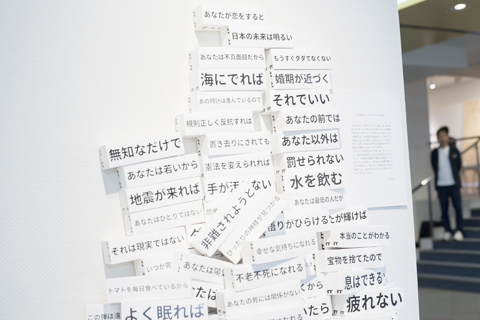 あなたが恋をすると
日本の未来は明るい
あなたは不真面目だから
もうすぐタダでなくない
海にでれば
婚期が近づく
あの時計は進んでいるので
それでいい
規則正しく反抗すれば
あなたの前では
無知なだけで
置き去りにされても
あなた以外は
あなたは若いから
憲法を変えられれば
罰せられない
地震が来れば
手が
水を飲む
非難されようとない
あなたはひとりではない
あなたは最低の人だが
悟りがひらける
が輝けば
それは現実ではない
幸せな気持ちになれる
本当のことがわかる
いつか
あなたは
不老不死になれる
宝物を捨てたので
トマトを毎日食べているから
息はできる
あなたの死には関係がない
から
疲れない
よく眠れば